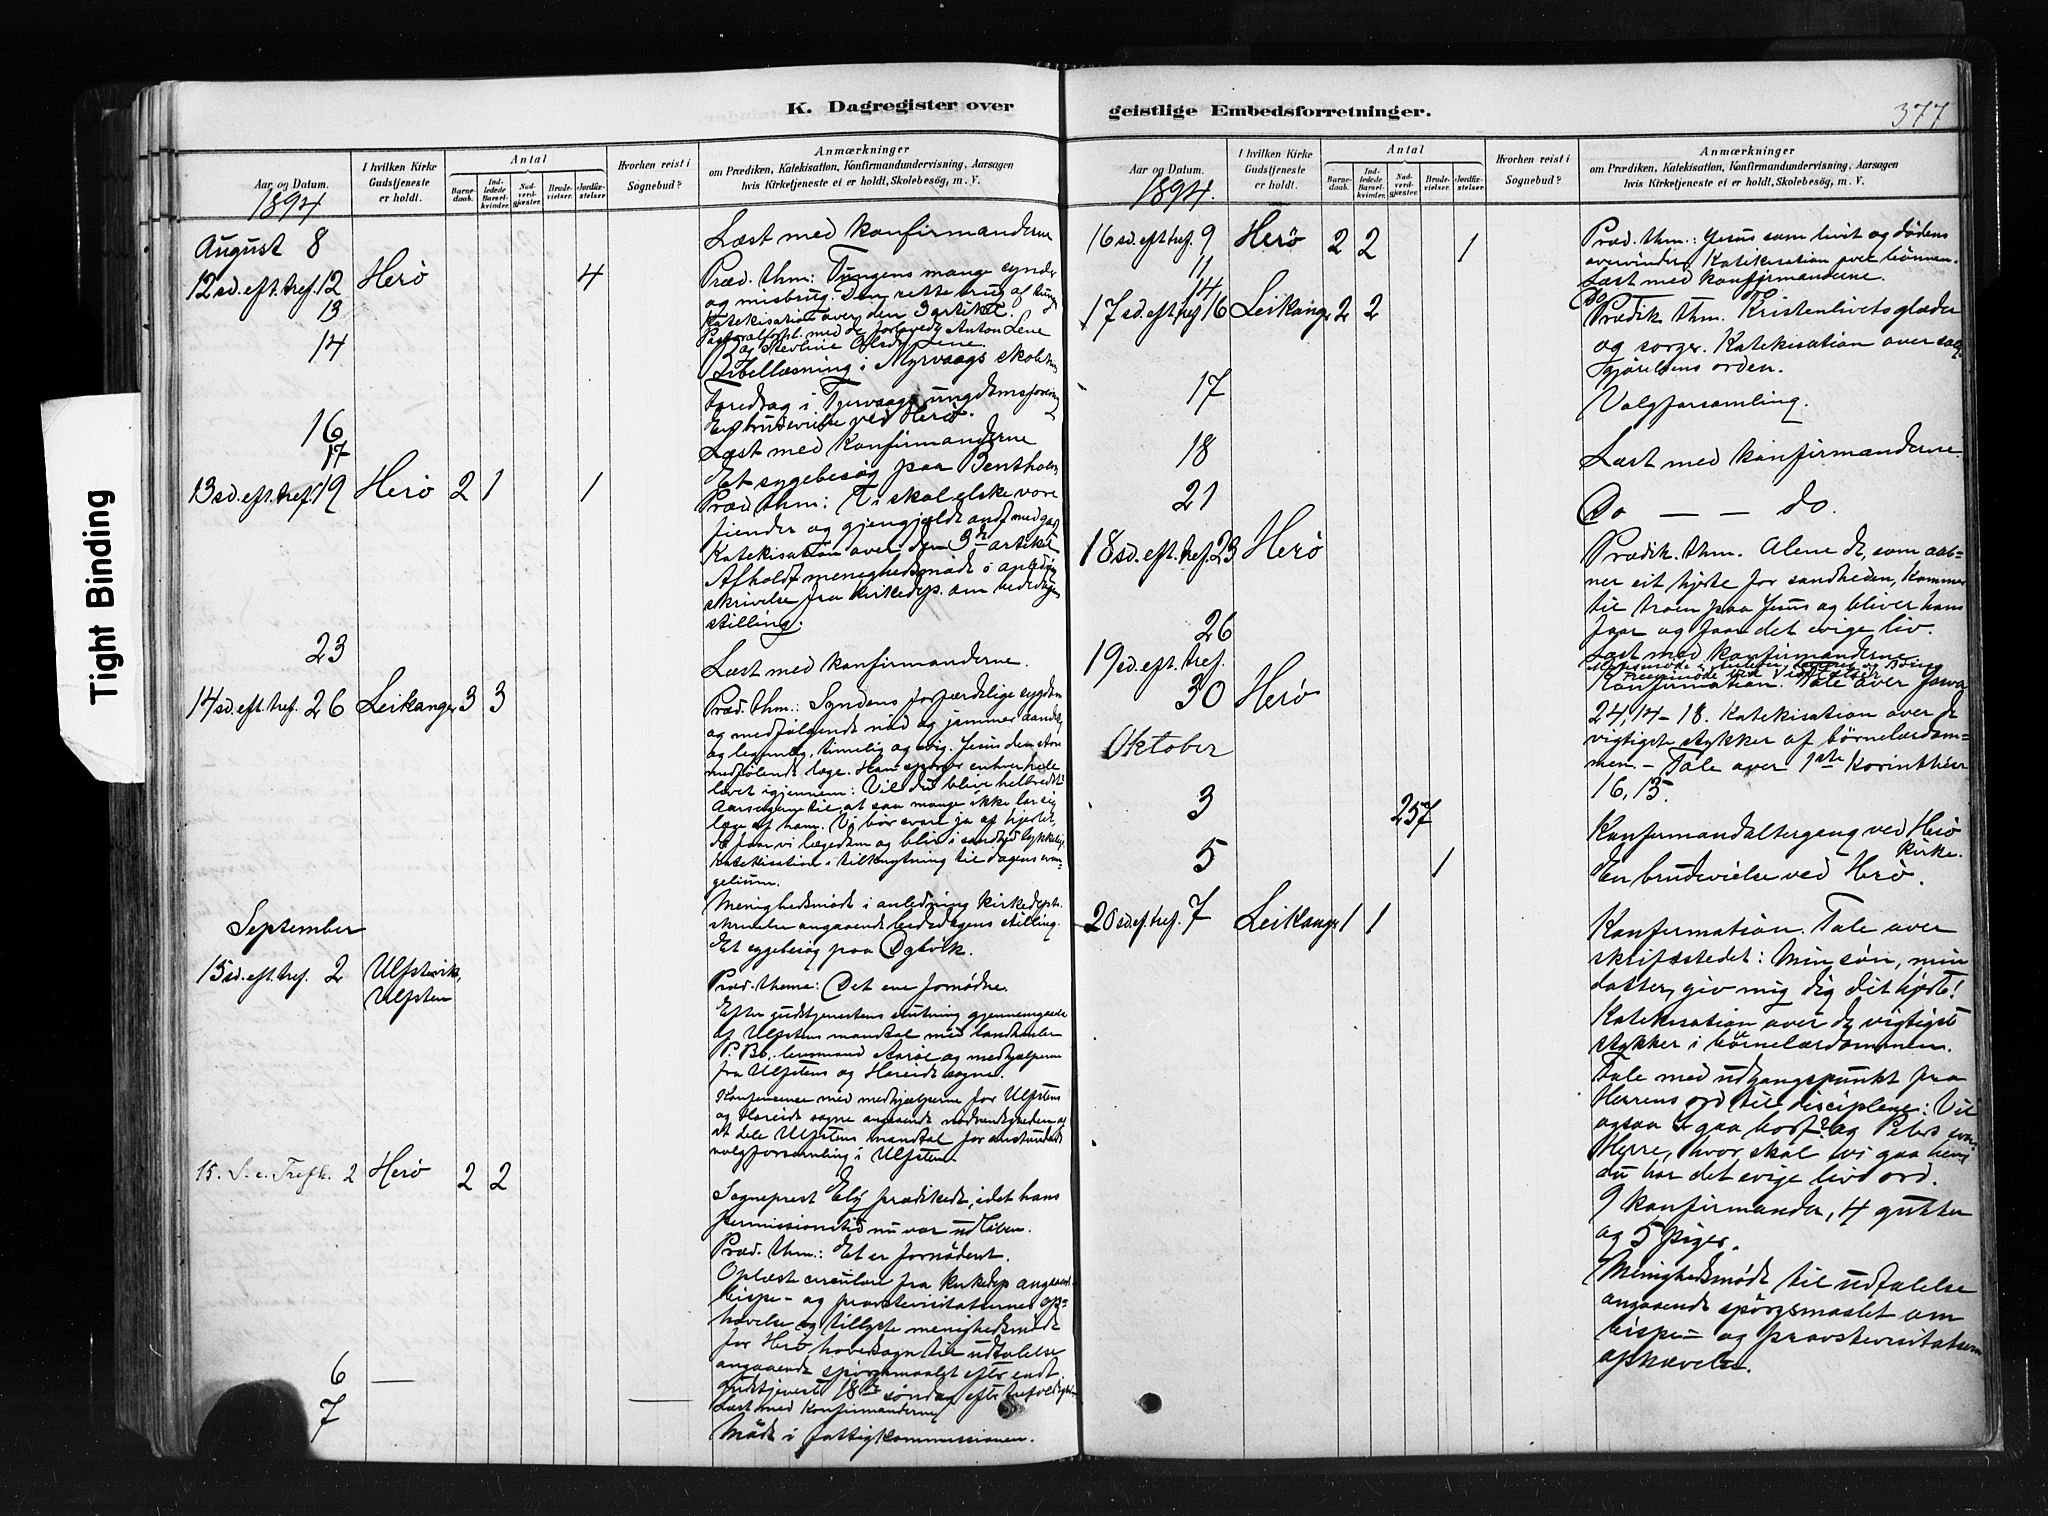 K. Dagregister over
Aar og Datum.
I hvilken Kirke Gudstjeneste er holdt.
Antal
Barnedaab.
Indledede Barselkvinder.
Nadverdgjæster.
Brudevielser.
Jordfæstelser
Hvorhen reist i Sognebud?
Anmærkninger
om Prædiken, Katekisation, Konfirmandundervisning, Aarsagen
hvis Kirketjeneste et er holdt, Skolebesøg, m. V.
1894
August 8 Læst med konfirmanderne
12 sd. eft. tref. 12 Herø 4 Præd. thm: Tungens mange synder
og misbrug. Den rette brug af
Katekisation over den 3 artikel.
13 Pastoral med de forlovede Anton Lene
og Lene.
14 Bibellæsning i Myrvaags skole
Foredrag i Tjervaags ungdomsforening
16 En brudevielse ved Herø.
17 Læst med Konfirmanderne
Et sygebesøg paa
13 sd. eft. tref. 19 Herø 2 1 1 Præd. thm: Vi skal elske vore
fiender og gjengjælde ondt med godt
Katekisation over den 3die artikel
Afholdt menighedsmøde i anledn.
skrivelse fra kirkedep. om bededagens
stilling.
23 Læst med konfirmanderne.
14 sd. eft. tref. 26 Leikanger 3 3 Præd. thm.: Syndens forfærdelige sygdom
og medfølgende nød og jammer aandelig
og legemlig, timelig og evig. Jesus den store
medfølende læge. Han spørger enhver hele
livet igjennem: Vil du blive helbredet?
Aarsagerne til at saa mange ikke lar sig
læge af ham. Vi bør svare ja af hjertet,
da faar vi lægedom og blir i sandhed lykkelig.
Katekisation i tilknytning til dagens evangelium.
Menighedsmøde i anledning kirkedepts.
skrivelse angaaende bededagens stilling.
Et sygebesøg paa
September
15 sd. eft. tref. 2 Ulfstenvik,
Ulfsten
Præd. thema: Det ene fornødne.
Efter gudstjenestens slutning gjennemgaaede
af Ulfstens mandtal med landhandler
P. Bø, lensmand Aarøe og medhjælperne
fra Ulfstens og Hareids sogne.
Konference med medhjælperne for Ulfstens
og Hareids sogne angaaende nødvendigheden af
at dele Ulfstens mandtal for anstundende
valgforsamling i Ulfsten.
15. S. e. Trefh. 2 Herø 2 2
Sogneprest Ely prædikede, idet hans
permissionstid nu var udløben.
Præd. thm.: Et er fornødent.
Oplæst circulære fra kirkedep angaaende
bispe- og provstevisitatsernes ophævelse
og tillyste menighedsmøde
for Herø hovedsogn til udtalelse
angaaende spørgsmaalet efter endt
gudstjeneste 18de søndag efter trefoldighed
6 — Læst med Konfirmanderne
7 Møde i fattigkommissionen.
geistlige Embedsforretninger.
377
Aar og Datum.
I hvilken Kirke Gudstjeneste er holdt.
Antal
Barnedaab.
Indledede Barselkvinder.
Nadverdgjæster.
Brudevielser.
Jordfæstelser
Hvorhen reist i Sognebud?
Anmærkninger
om Prædiken, Katekisation, Konfirmandundervisning, Aarsagen
hvis Kirketjeneste et er holdt, Skolebesøg, m. V.
1894.
16 sd. eft. tref. 9 Herø 2 2 1 Præd. thm.: Jesus som livets og dødens
overvinder. Katekisation over bønnen.
11 Læst med konfirmanderne.
14 Do
17 sd. eft. tref. 16 Leikanger 2 2 Prædik. thm. Kristenlivets glæder
og sorger. Katekisation over saliggjørelsens
orden.
17 Valgforsamling.
18 Læst med konfirmanderne.
21 Do — — do.
18 sd. eft. tref. 23 Herø Prædik. thm. Alene de, som aabner
sit hjerte for sandheden, kommer
til troen paa Jesus og bliver hans
faar og faar det evige liv.
26 Læst med konfirmanderne.
19 sd. eft. tref.
30 Herø Konfirmation. Tale over Josva
24, 14-18. Katekisation over de
vigtigste stykker af børnelærdommen.
- Tale over 1ste Korinthier
16, 13.
Oktober
3 257 Konfirmandaltergang ved Herø
kirke.
5 1 En brudevielse ved Herø.
20 sd. ef. tref. 7 Leikanger 1 1 Konfirmation. Tale over
skriftstedet: Min søn, min
datter, giv mig dig dit hjerte!
Katekisation over de vigtigste
stykker i børnelærdommen.
Tale med udgangspunkt fra
Herrens ord til disciplene: Vil
ogsaa I gaa bort? og Peters svar
Herre, hvor skal vi gaa hen?
du har det evige livs ord.
9 konfirmander, 4 gutter
og 5 piger.
Menighedsmøde til udtalelse
angaaende spørgsmaalet om
bispe- og provstevisitatsens
ophævelse.
Tight Binding